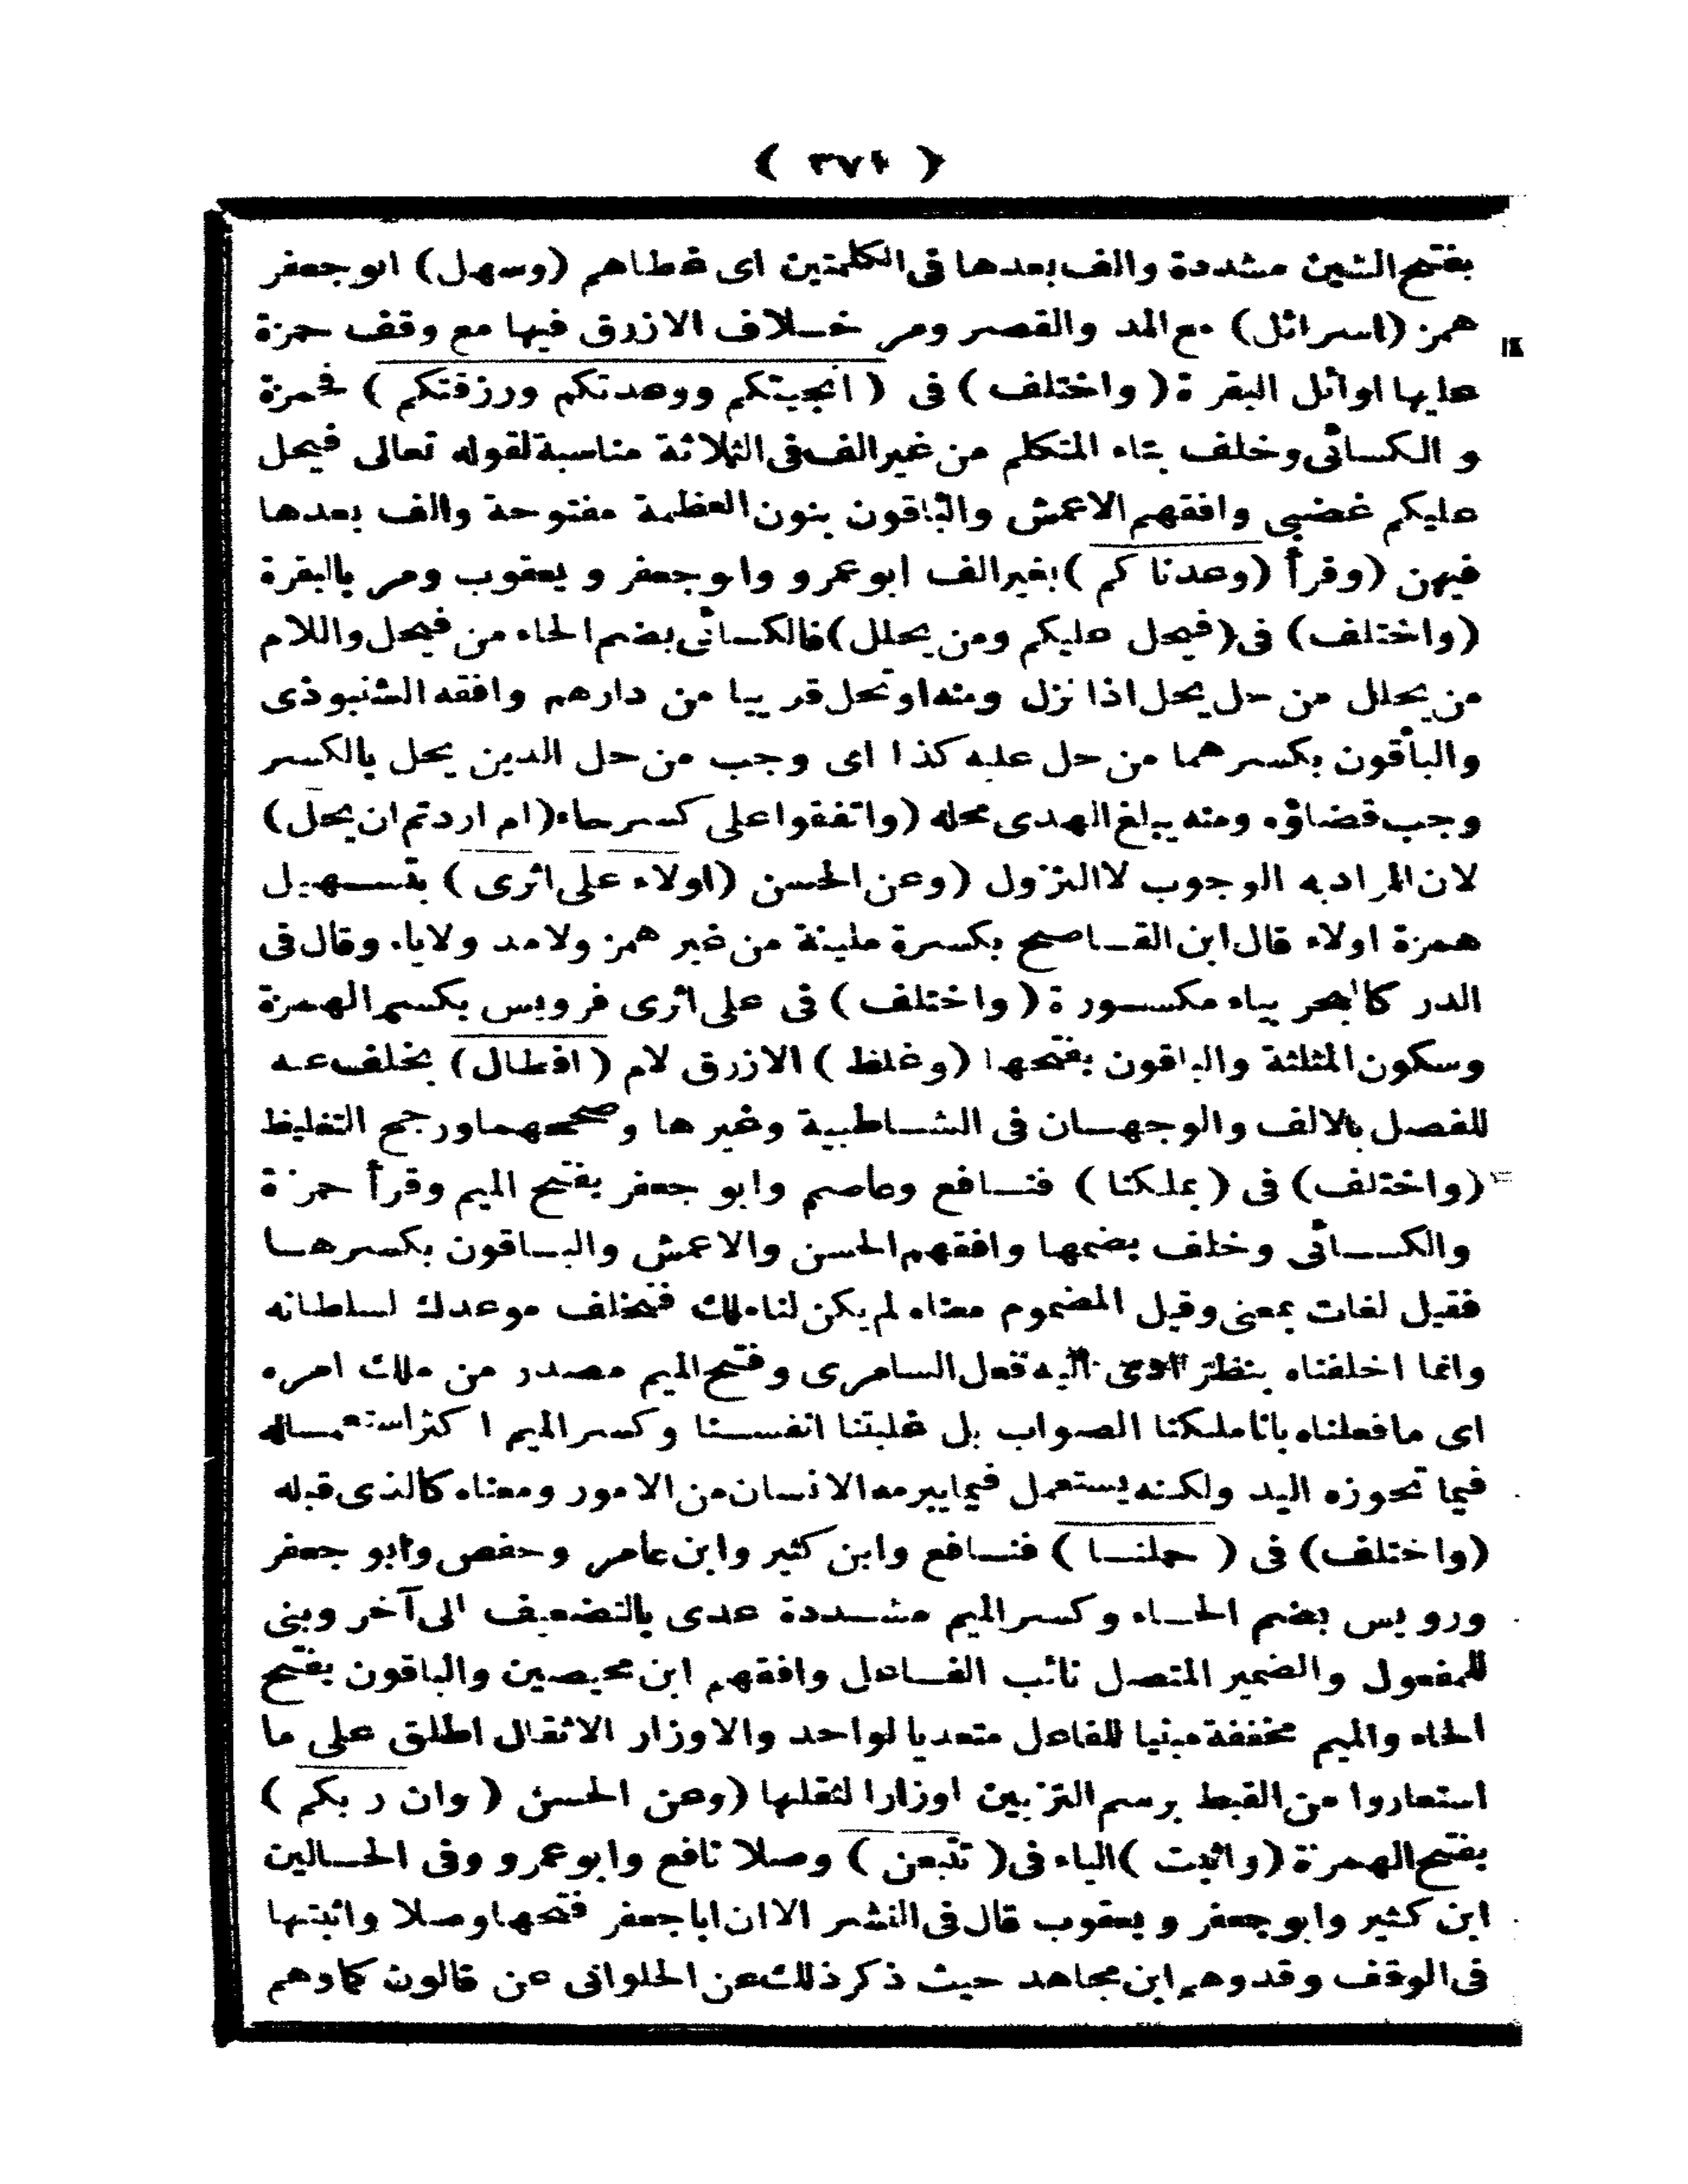 ( ٣٧٤ )
بفتح الشين مشددة والف بعدها فى الكلمتين اى غطاهم (وسهل) ابو جعفر
همز (اسرائل) مع المد والقصر ومر خـلاف الازرق فيها مع وقف حمزة
عليها اوائل البقرة (واختلف) فى (انجيتكم ووعدتكم ورزقتكم) فحمزة
و الكسائى وخلف بتاء المتكلم من غير الف فى الثلاثة مناسبة لقوله تعالى فيحل
عليكم غضبى وافقهم الاعمش والباقون بنون العظمة مفتوحة والف بعدها
فيهن (وقرأ (وعدناكم) بغير الف ابو عمرو وابو جعفر و يعقوب ومر بالبقرة
(واختلف) فى (فيحل عليكم ومن يحلل) فالكسائى بضم الحاء من فيحل واللام
من يحلل من حل يحل اذا نزل ومنه او تحل قريبا من دارهم وافقه الشنبوذى
والباقون بكسرهما من حل عليه كذا اى وجب من حل الدين يحل بالكسر
وجب قضاؤه ومنه يبلغ الهدى محله (واتفقوا على كسر حاء (ام اردتم ان يحل)
لان المراد به الوجوب لا النزول (وعن الحسن (اولاء على اثرى) بتسـهيل
همزة اولاء قال ابن القـاصح بكسرة ملينة من غير همز ولا مد ولا ياء وقال فى
الدر كالبحر بياء مكسـورة (واختلف) فى على اثرى فرويس بكسر الهمزة
وسكون المثلثة والباقون بفتحها (وغلظ) الازرق لام (افطال) بخلف عـه
للفصل بالالف والوجهـان فى الشـاطبية وغيرها وصححهما ورجح التغليظ
(واختلف) فى (بملكنا) فنـافع وعاصم وابو جعفر بفتح الميم وقرأ حمزة
والكسـائى وخلف بضمها وافقهم الحسن والاعمش والبـاقون بكسرهـا
فقيل لغات بمعنى وقيل المضموم معناه لم يكن لنا ملك فتخلف موعدك لسلطانه
وانما اخلفناه بنظر ادى اليه فعل السامرى وفتح الميم مصدر من ملك امره
اى ما فعلناه بانا ملكنا الصواب بل غلبتنا انفسـنا وكسر الميم اكثر استعمـاله
فيما تحوزه اليد ولكنه يستعمل فيما يبرمه الانسان من الامور ومعناه كالذى قبله
(واختلف) فى (حملنـا) فنـافع وابن كثير وابن عامر وحفص وابو جعفر
ورويس بضم الحـاء وكسر الميم مشـددة عدى بالتضعيف الى آخر وبنى
للمفعول والضمير المتصل نائب الفـاعل وافقهم ابن محيصين والباقون بفتح
الحاء والميم مخففة مبنيا للفاعل متعديا لواحد والاوزار الاثقال اطلق على ما
استعاروا من القبط برسم التزيين اوزارا لثقلها (وعن الحسن (وان ربكم)
بفتح الهمزة (واثبت) الياء فى (تتبعن) وصلا نافع وابو عمرو وفى الحـالين
ابن كثير وابو جعفر و يعقوب قال فى النشر الا ان ابا جعفر فتحها وصلا واثبتها
فى الوقف وقد وهم ابن مجاهد حيث ذكر ذلك عن الحلوانى عن قالون كما وهم